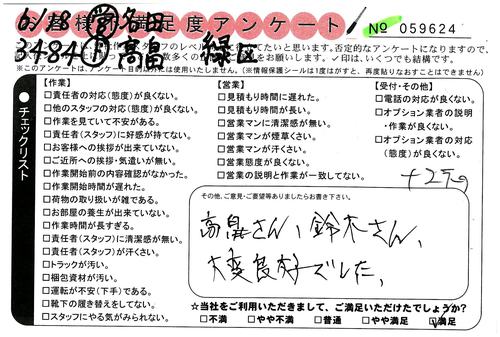 6/18 名田
お客様満足度アンケート
No 059624
3484 高畠 緑区
※このアンケートは、アンケート目的以外には使用いたしません。(※情報保護シールは1度はがすと、再度貼りなおすことはできません)
チェックリスト
【作業】
□責任者の対応(態度)が良くない。
□他のスタッフの対応(態度)が良くない。
□作業を見ていて不安がある。
□責任者(スタッフ)に好感が持てない。
□お客様への挨拶が出来ていない。
□ご近所への挨拶・気遣いが無い。
□作業開始前の内容確認がなかった。
□作業開始時間が遅れた。
□荷物の取り扱いが雑である。
□お部屋の養生が出来ていない。
□作業時間が長すぎる。
□責任者(スタッフ)に清潔感が無い。
□責任者(スタッフ)が汗くさい。
□トラックが汚い。
□梱包資材が汚い。
□運転が不安(下手)である。
□靴下の履き替えをしてない。
□スタッフにやる気がみられない。
【営業】
□見積もり時間に遅れた。
□見積もり時間が長い。
□営業マンに清潔感が無い。
□営業マンが煙草くさい。
□営業マンが汗くさい。
□営業態度が良くない。
□営業の説明と作業が一致してない。
【受付・その他】
□電話の対応が良くない。
□オプション業者の説明
・作業が良くない。
□オプション業者の対応
(態度)が良くない。
その他、ご意見・ご要望等ありましたらお書き下さい。
高畠さん、鈴木さん、
大変良好でした。
☆当社をご利用いただきまして、ご満足いただけたでしょうか?
□不満 □やや不満 □普通 □やや満足 ☑満足